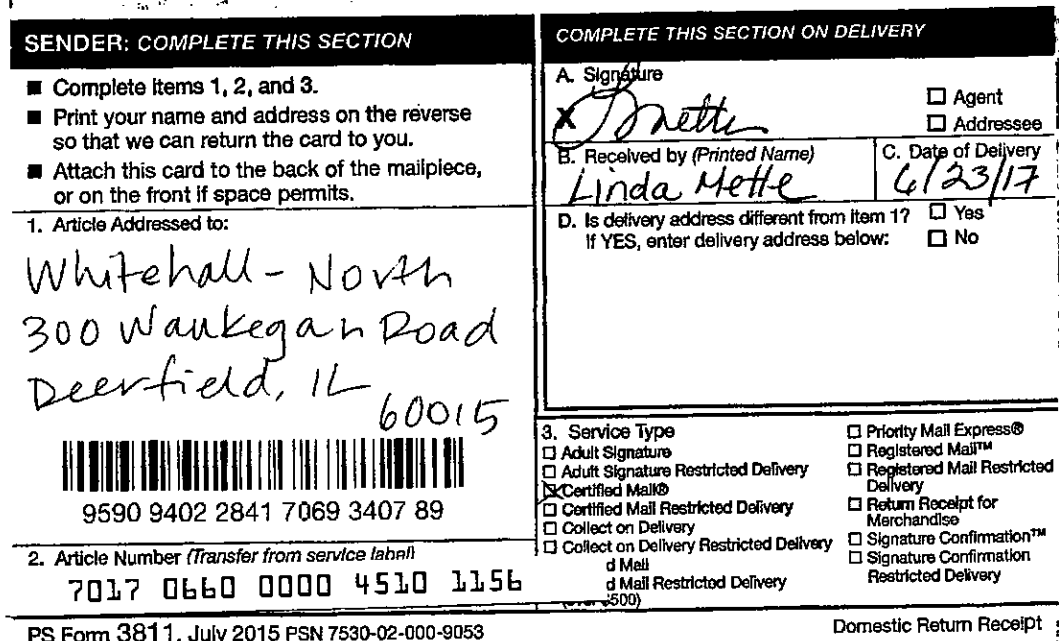 SENDER: COMPLETE THIS SECTION
■ Complete items 1, 2, and 3.
■ Print your name and address on the reverse
so that we can return the card to you.
■ Attach this card to the back of the mailpiece,
or on the front if space permits.
1. Article Addressed to:
Whitehall - North
300 Waukegan Road
Deerfield, IL
60015
9590 9402 2841 7069 3407 89
2. Article Number (Transfer from service label)
7017 0660 0000 4510 1156
COMPLETE THIS SECTION ON DELIVERY
A. Signature
X
☐ Agent
☐ Addressee
B. Received by (Printed Name)
Linda Mette
C. Date of Delivery
6/23/17
D. Is delivery address different from item 1? ☐ Yes
If YES, enter delivery address below: ☐ No
3. Service Type
☐ Adult Signature
☐ Adult Signature Restricted Delivery
☒ Certified Mail®
☐ Certified Mail Restricted Delivery
☐ Collect on Delivery
☐ Collect on Delivery Restricted Delivery
d Mail
d Mail Restricted Delivery
500)
☐ Priority Mail Express®
☐ Registered Mail™
☐ Registered Mail Restricted
Delivery
☐ Return Receipt for
Merchandise
☐ Signature Confirmation™
☐ Signature Confirmation
Restricted Delivery
PS Form 3811, July 2015 PSN 7530-02-000-9053
Domestic Return Receipt